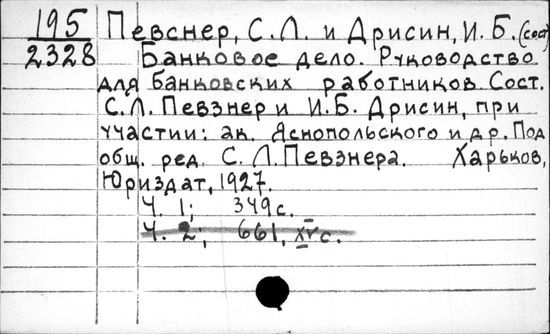 195 Певснер, С. Л. и Дрисин, И. Б. (сост)
2328 Банковое дело. Руководство
для банковских работников. Сост.
С. Л. Певзнер и И. Б. Дрисин, при
участии: ак. Яснопольского и др. Под
общ. ред. С. Л. Певзнера. Харьков,
Юриздат, 1927.
Ч. 1; 349 с.
Ч. 2; 661, XV с.